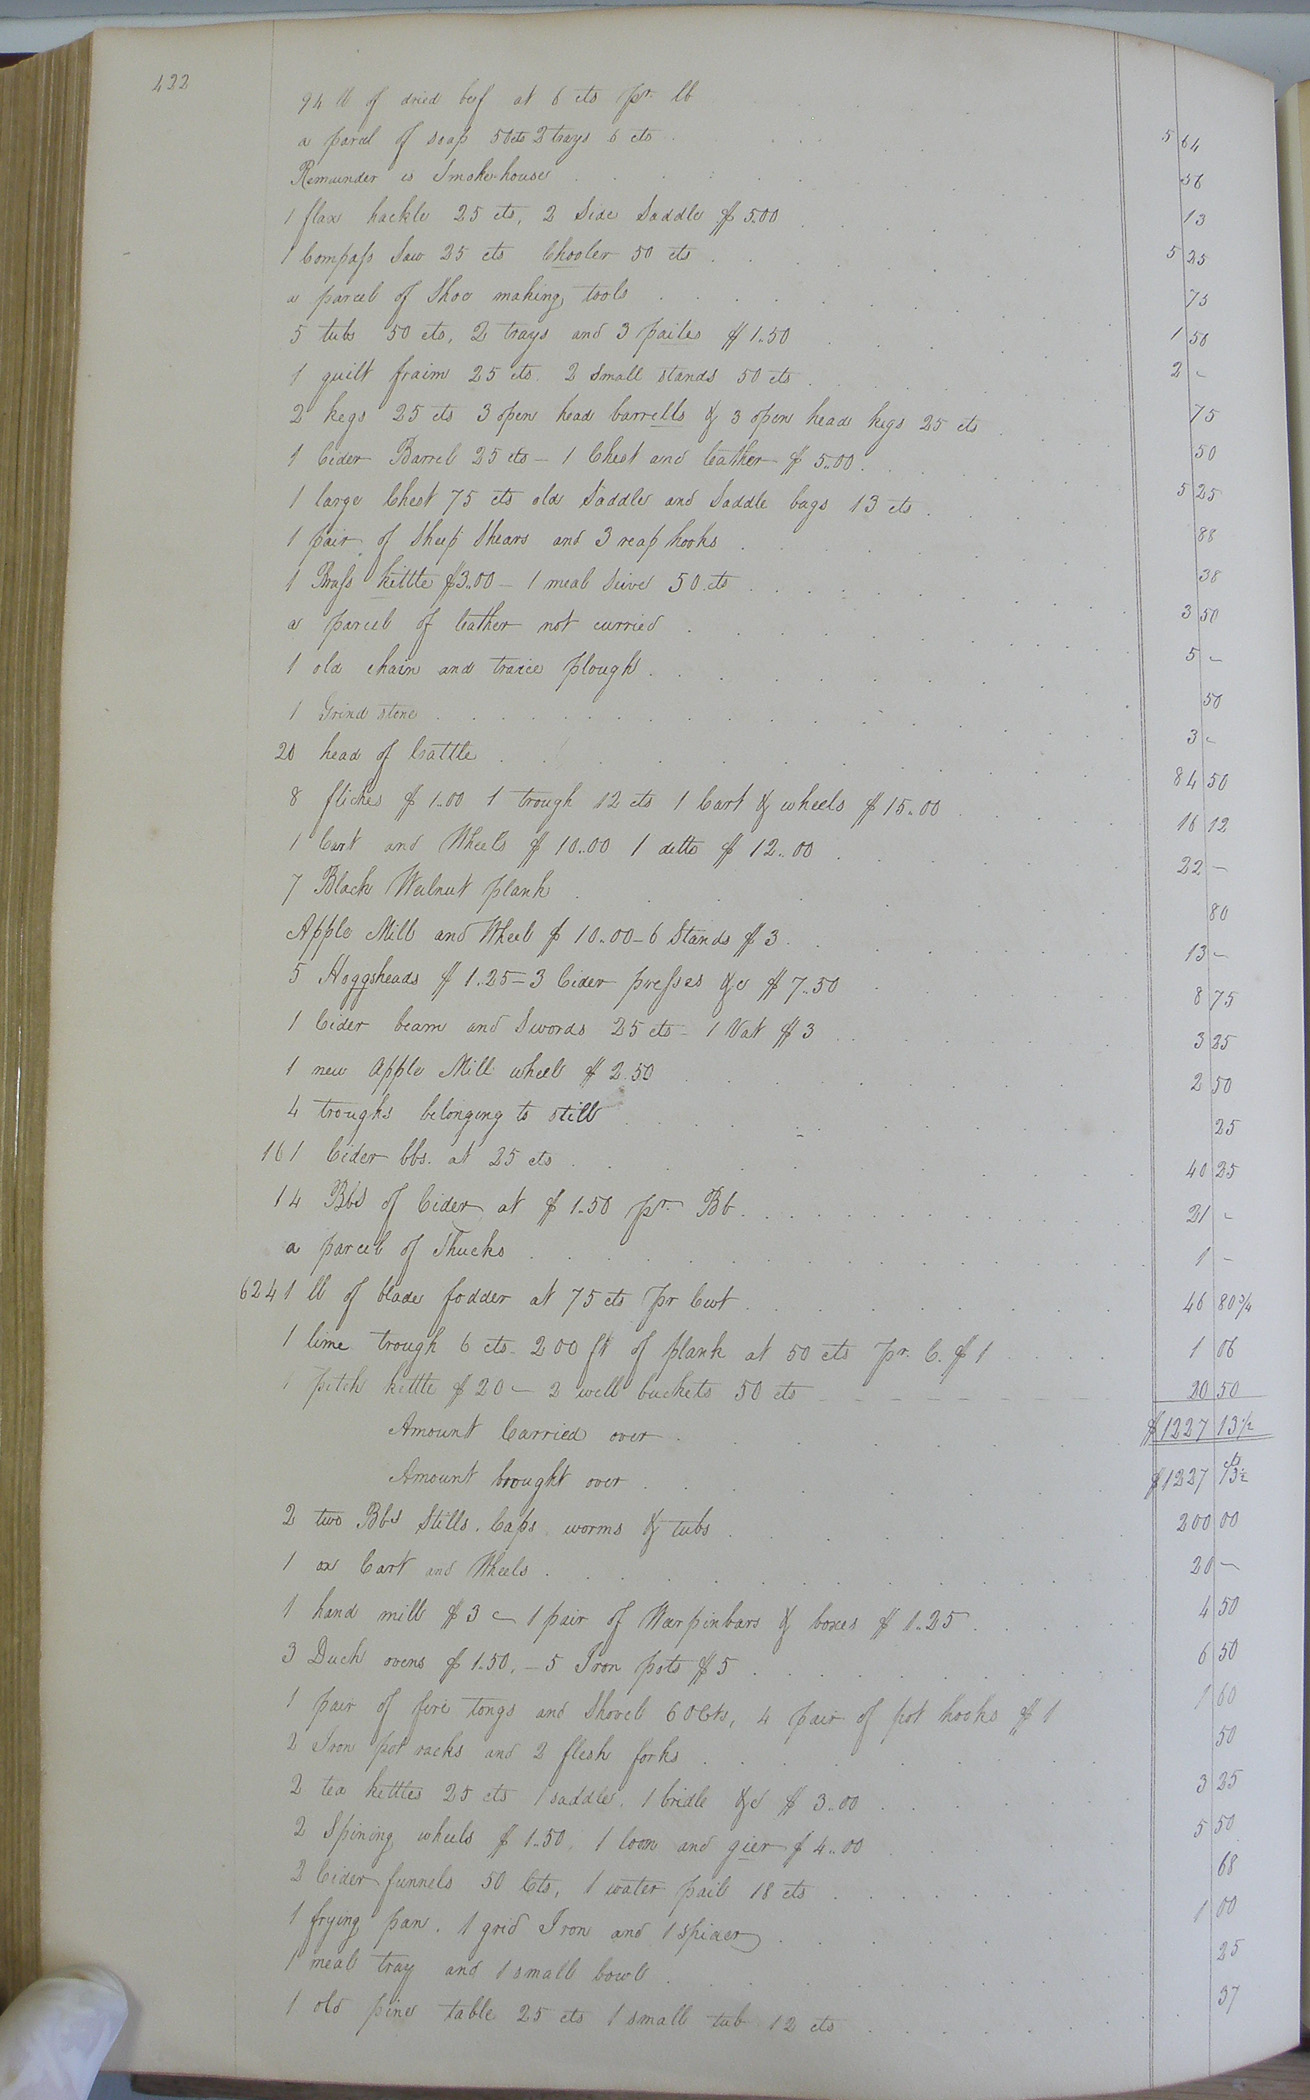 422
94 lb of dried beef at 6 cts pr. lb 5 64
a parcel of soap 50 cts 2 trays 6 cts 56
Remainder in Smoke-house 13
1 flax hackle 25 cts, 2 Side Saddle $ 5.00 5 25
1 Compass Saw 25 cts Chooler 50 cts 75
a parcel of Shoe making tools 1 50
5 tubs 50 cts, 2 trays and 3 pailes $ 1.50 2 -
1 quilt fraim 25 cts. 2 small stands 50 cts 75
2 kegs 25 cts 3 open head barrells & 3 open head kegs 25 cts 50
1 Cider Barrel 25 cts - 1 Chest and leather $ 5.00 5 25
1 large Chest 75 cts old Saddle and Saddle bags 13 cts 88
1 pair of Sheep Shears and 3 reap hooks 38
1 Brass kettle $3.00 - 1 meal Seive 50 cts 3 50
a parcel of leather not curried 5 -
1 old chain and traice plough 50
1 Grind stone 3 -
20 head of Cattle 84 50
8 fliches $ 1.00 1 trough 12 cts 1 Cart & wheels $ 15.00 16 12
1 Cart and Wheels $ 10.00 1 ditto $ 12.00 22 -
7 Black Walnut plank 80
Apple Mill and Wheel $ 10.00 - 6 Stands $ 3 13 -
5 Hoggsheads $ 1.25 - 3 Cider presses &c $ 7.50 8 75
1 Cider beam and Swords 25 cts - 1 Vat $ 3 3 25
1 new Apple Mill wheel $ 2.50 2 50
4 troughs belonging to still 25
161 Cider bbs. at 25 cts 40 25
14 Bbs of Cider at $ 1.50 pr Bb 21 -
a parcel of Shucks 1 -
6241 lb of blade fodder at 75 cts pr Cwt 46 80 3/4
1 lime trough 6 cts. 200 ft of plank at 50 cts pr. C. $ 1 1 06
1 pitch kettle $ 20 - 2 well buckets 50 cts 20 50
Amount Carried over $1227 13 1/2
Amount brought over $1227 13 1/2
2 two Bbs Stills, Caps worms & tubs 200 00
1 ox Cart and Wheels 20 -
1 hand mill $ 3 - 1 pair of Warpinbars & boxes $ 1.25 4 50
3 Duch ovens $ 1.50, - 5 Iron pots $ 5 6 50
1 pair of fire tongs and Shovel 60 Cts, 4 pair of pot hooks $ 1 1 60
2 Iron pot racks and 2 flesh forks 50
2 tea kettles 25 cts 1 saddle, 1 bridle &c $ 3.00 3 25
2 Spining wheels $ 1.50, 1 loom and gier $ 4.00 5 50
2 Cider funnels 50 Cts, 1 water pail 18 cts 68
1 frying pan, 1 grid Iron and 1 spider 1 00
1 meal tray and 1 small bowl 25
1 old pine table 25 cts 1 small tub 12 cts 37